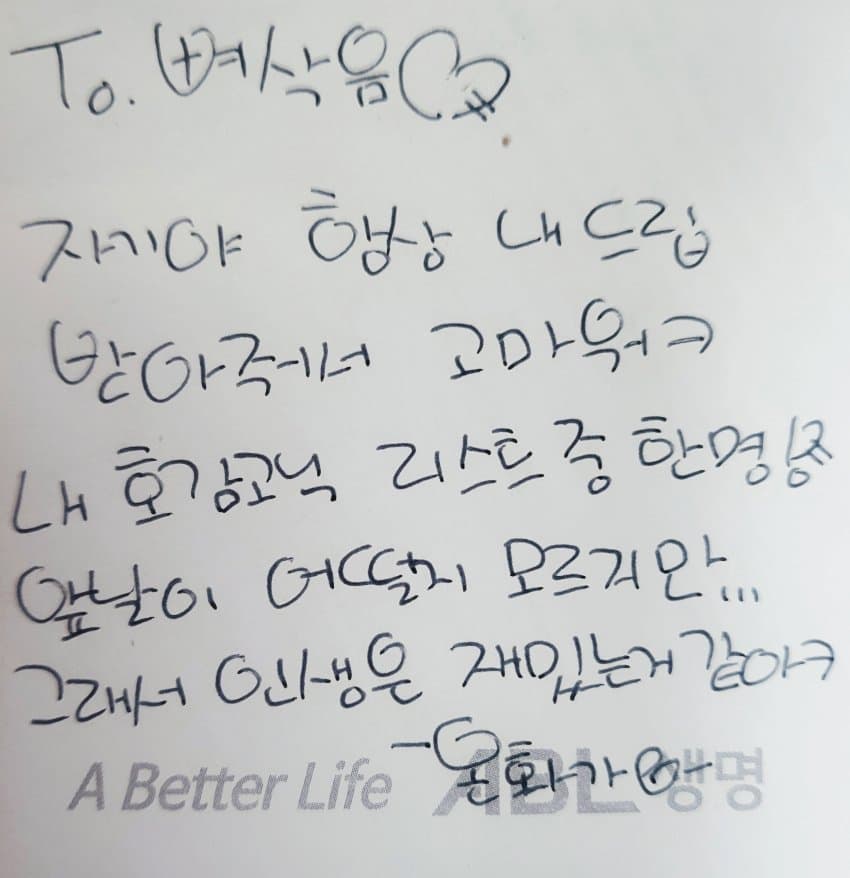 To. 벼삭음♡
자기야 항상 내 드립
받아줘서 고마워ㅋ
내 호감고닉 리스트 중 한명
앞날이 어떨지 모르지만...
그래서 인생은 재밌는거 같아ㅋ
A Better Life ABL생명